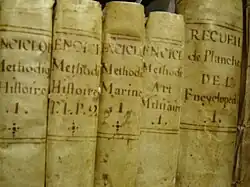 ENCICLOP
Methodiq
Histoire
1.
ENCICL
Methodi
Histoire
T.I.P.2.
ENCICL
Methodi
Marine
1.
ENCICL
Methodi
Art
Militaire
1.
RECUEIL
de Planches
DE L
Encyclopedi
1.